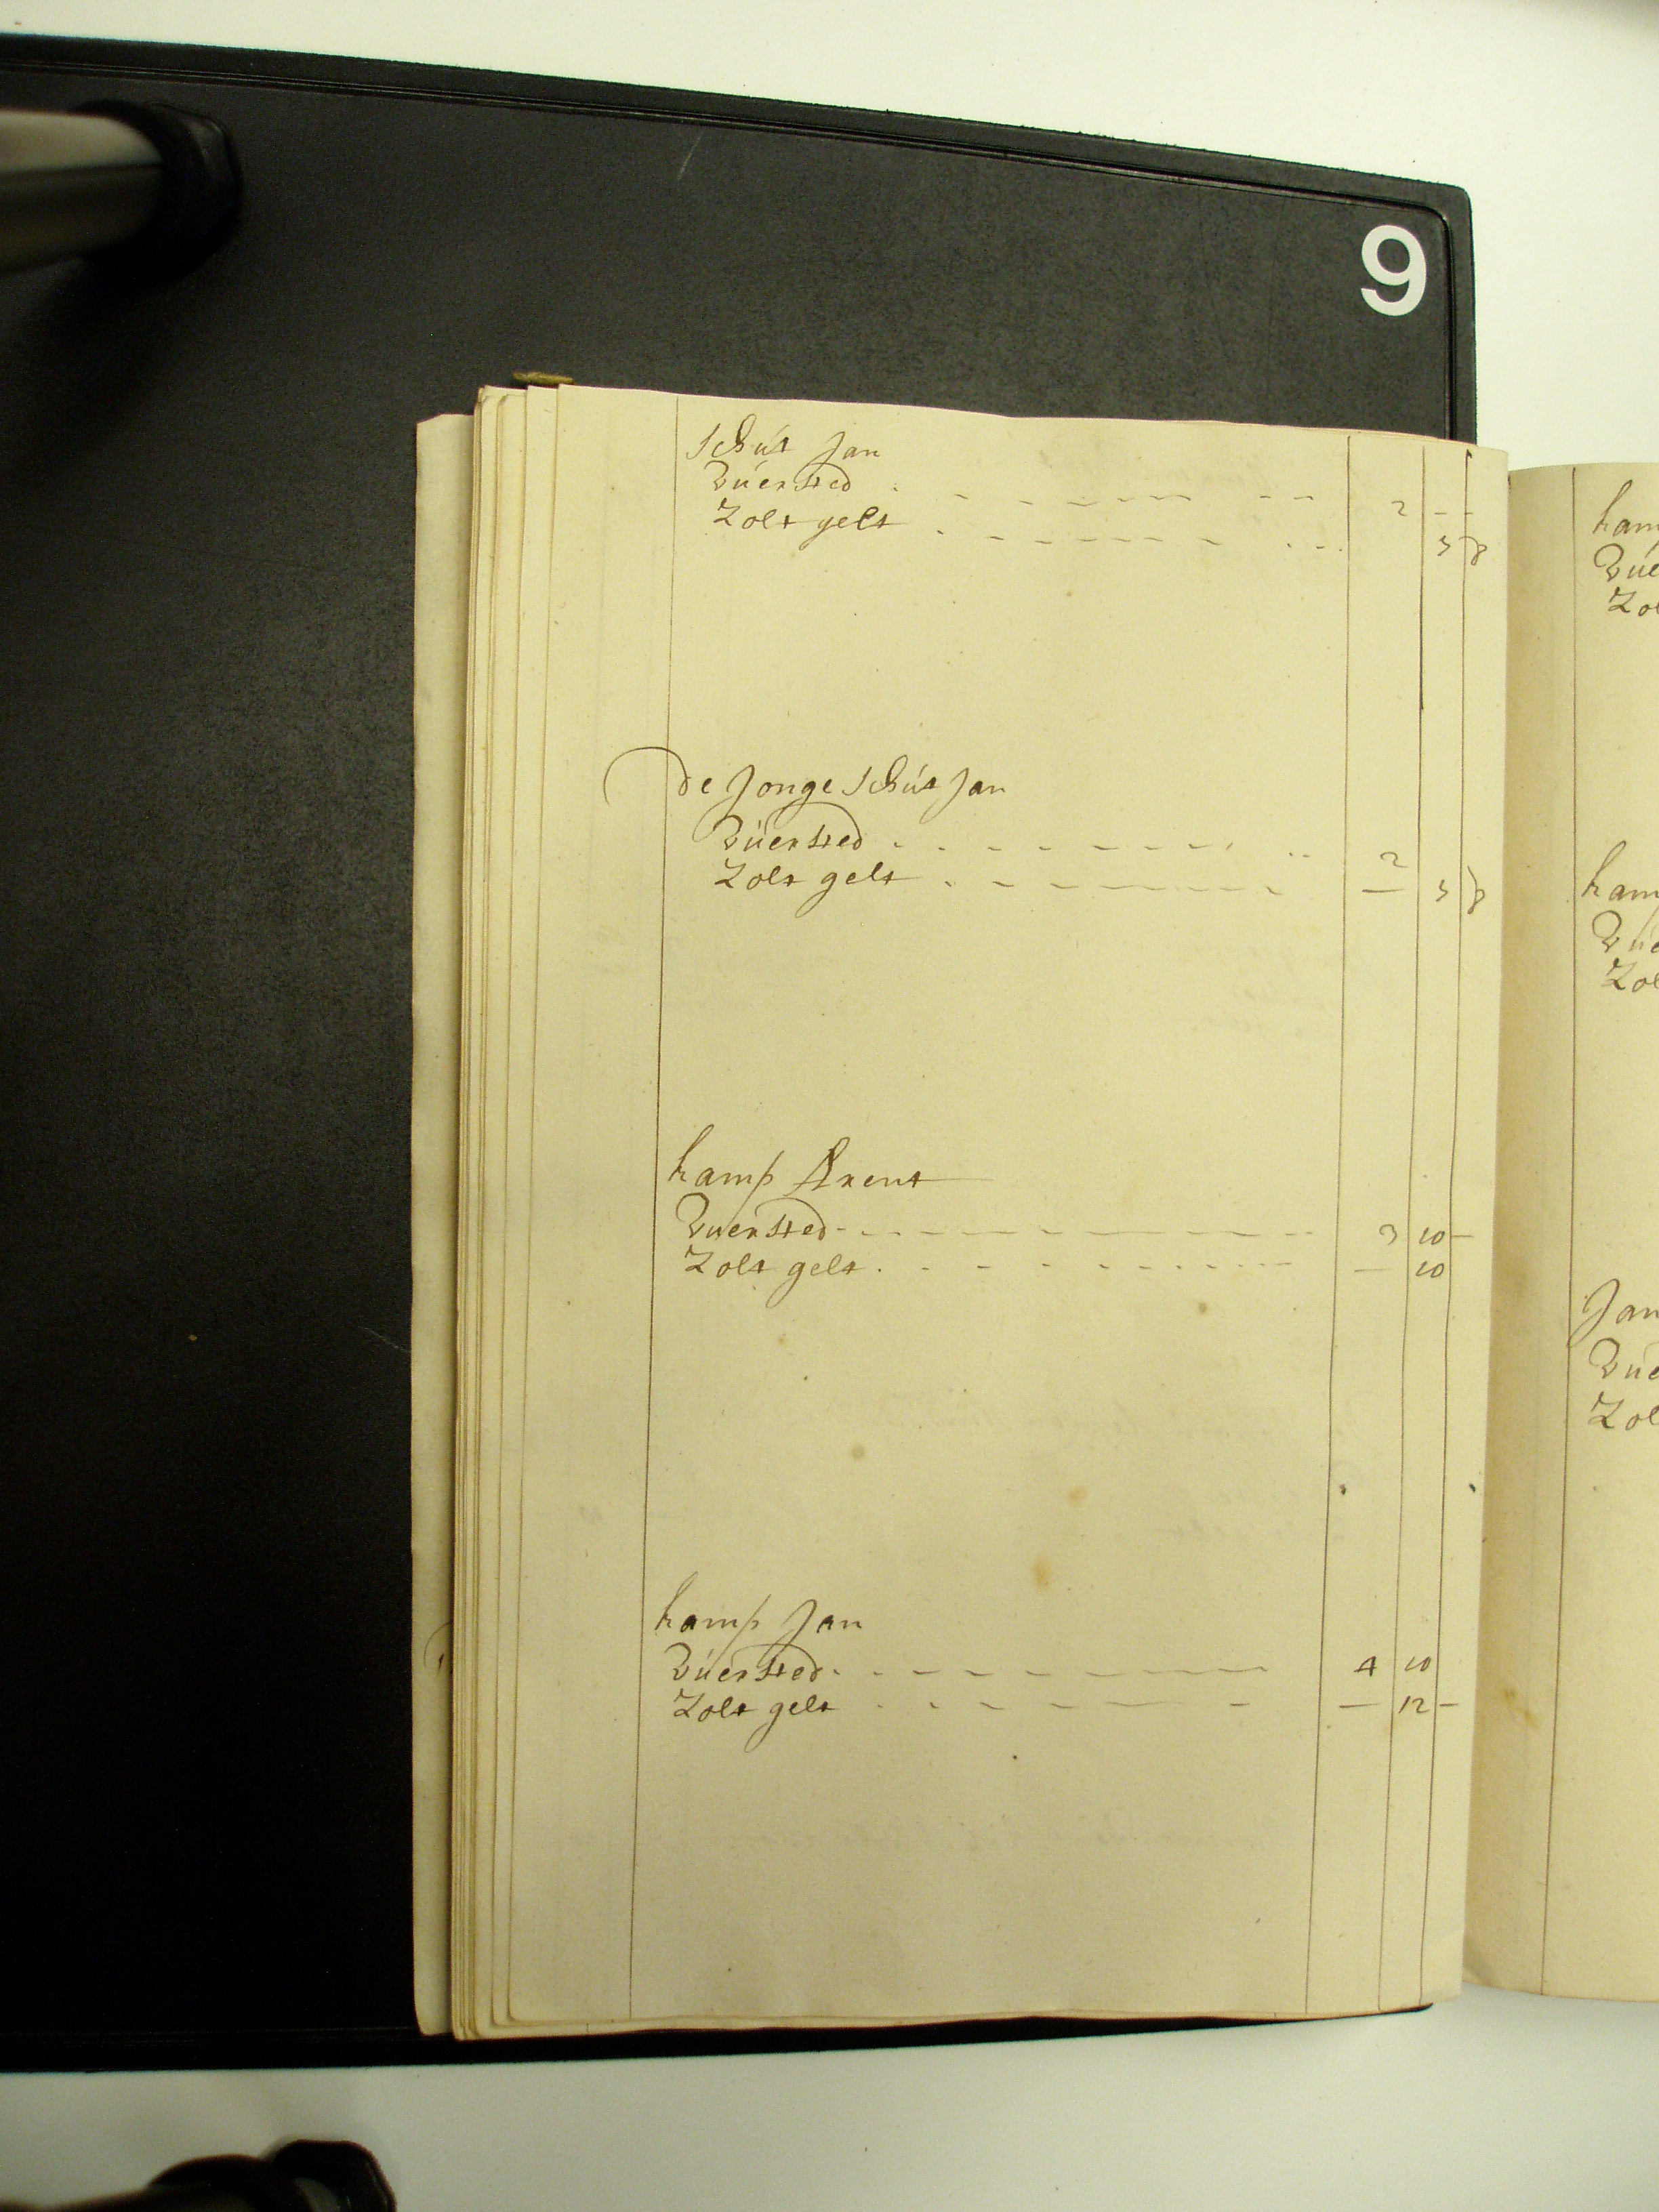 9
Schut Jan
Vuersted - - 2 - -
Zolt gelt - - 5 8
De Jonge Schut Jan
Vuersted - - 2
Zolt gelt - - — 5 8
hamp Arent
Vuersted - - 3 10 —
Zolt gelt - - — 10
hamp Jan
Vuersted - - 4 10
Zolt gelt - - — 12 —
ham
Vue
Zol
ham
Vue
Zol
Jan
Vue
Zol